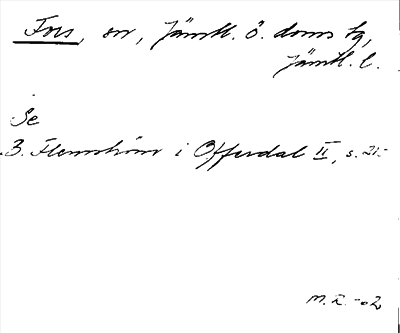 Fors, sn, Jämtl. ö. doms tg,
Jämtl. l.
Se
B. Flemström i Offerdal II, s. 21
M. E. -02